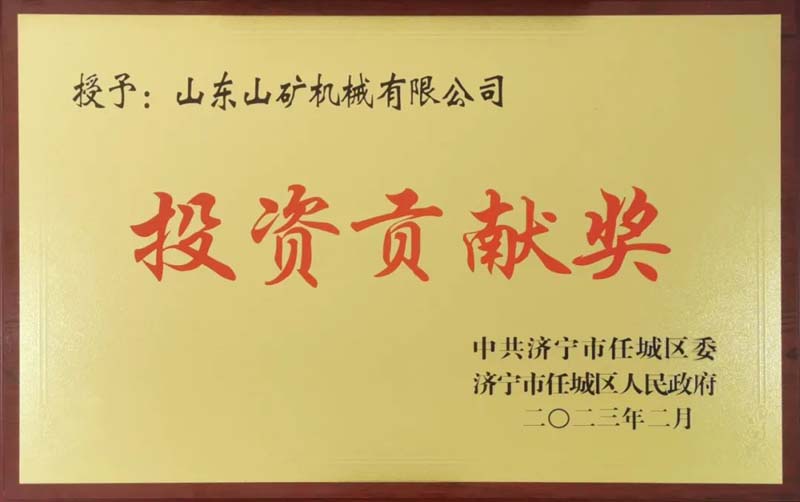 授予：山东山矿机械有限公司
投资贡献奖
中共济宁市任城区委
济宁市任城区人民政府
二〇二三年二月